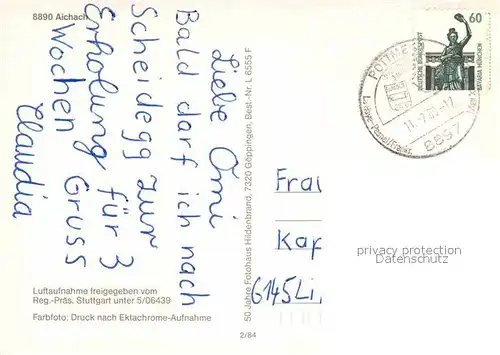 8890 Aichach
Liebe Omi
Bald darf ich nach
Scheidegg zur
Erholung für 3
Wochen Gruss
Claudia
Luftaufnahme freigegeben vom
Reg.-Präs. Stuttgart unter 5/06439
Farbfoto: Druck nach Ektachrome-Aufnahme
2/84
50 Jahre Fotohaus Hildenbrand, 7320 Göppingen, Best.-Nr. L 6555 F
60
DEUTSCHE BUNDESPOST
BAVARIA MÜNCHEN
8897
Frau
Kap
6145 Li
privacy protection
Datenschutz